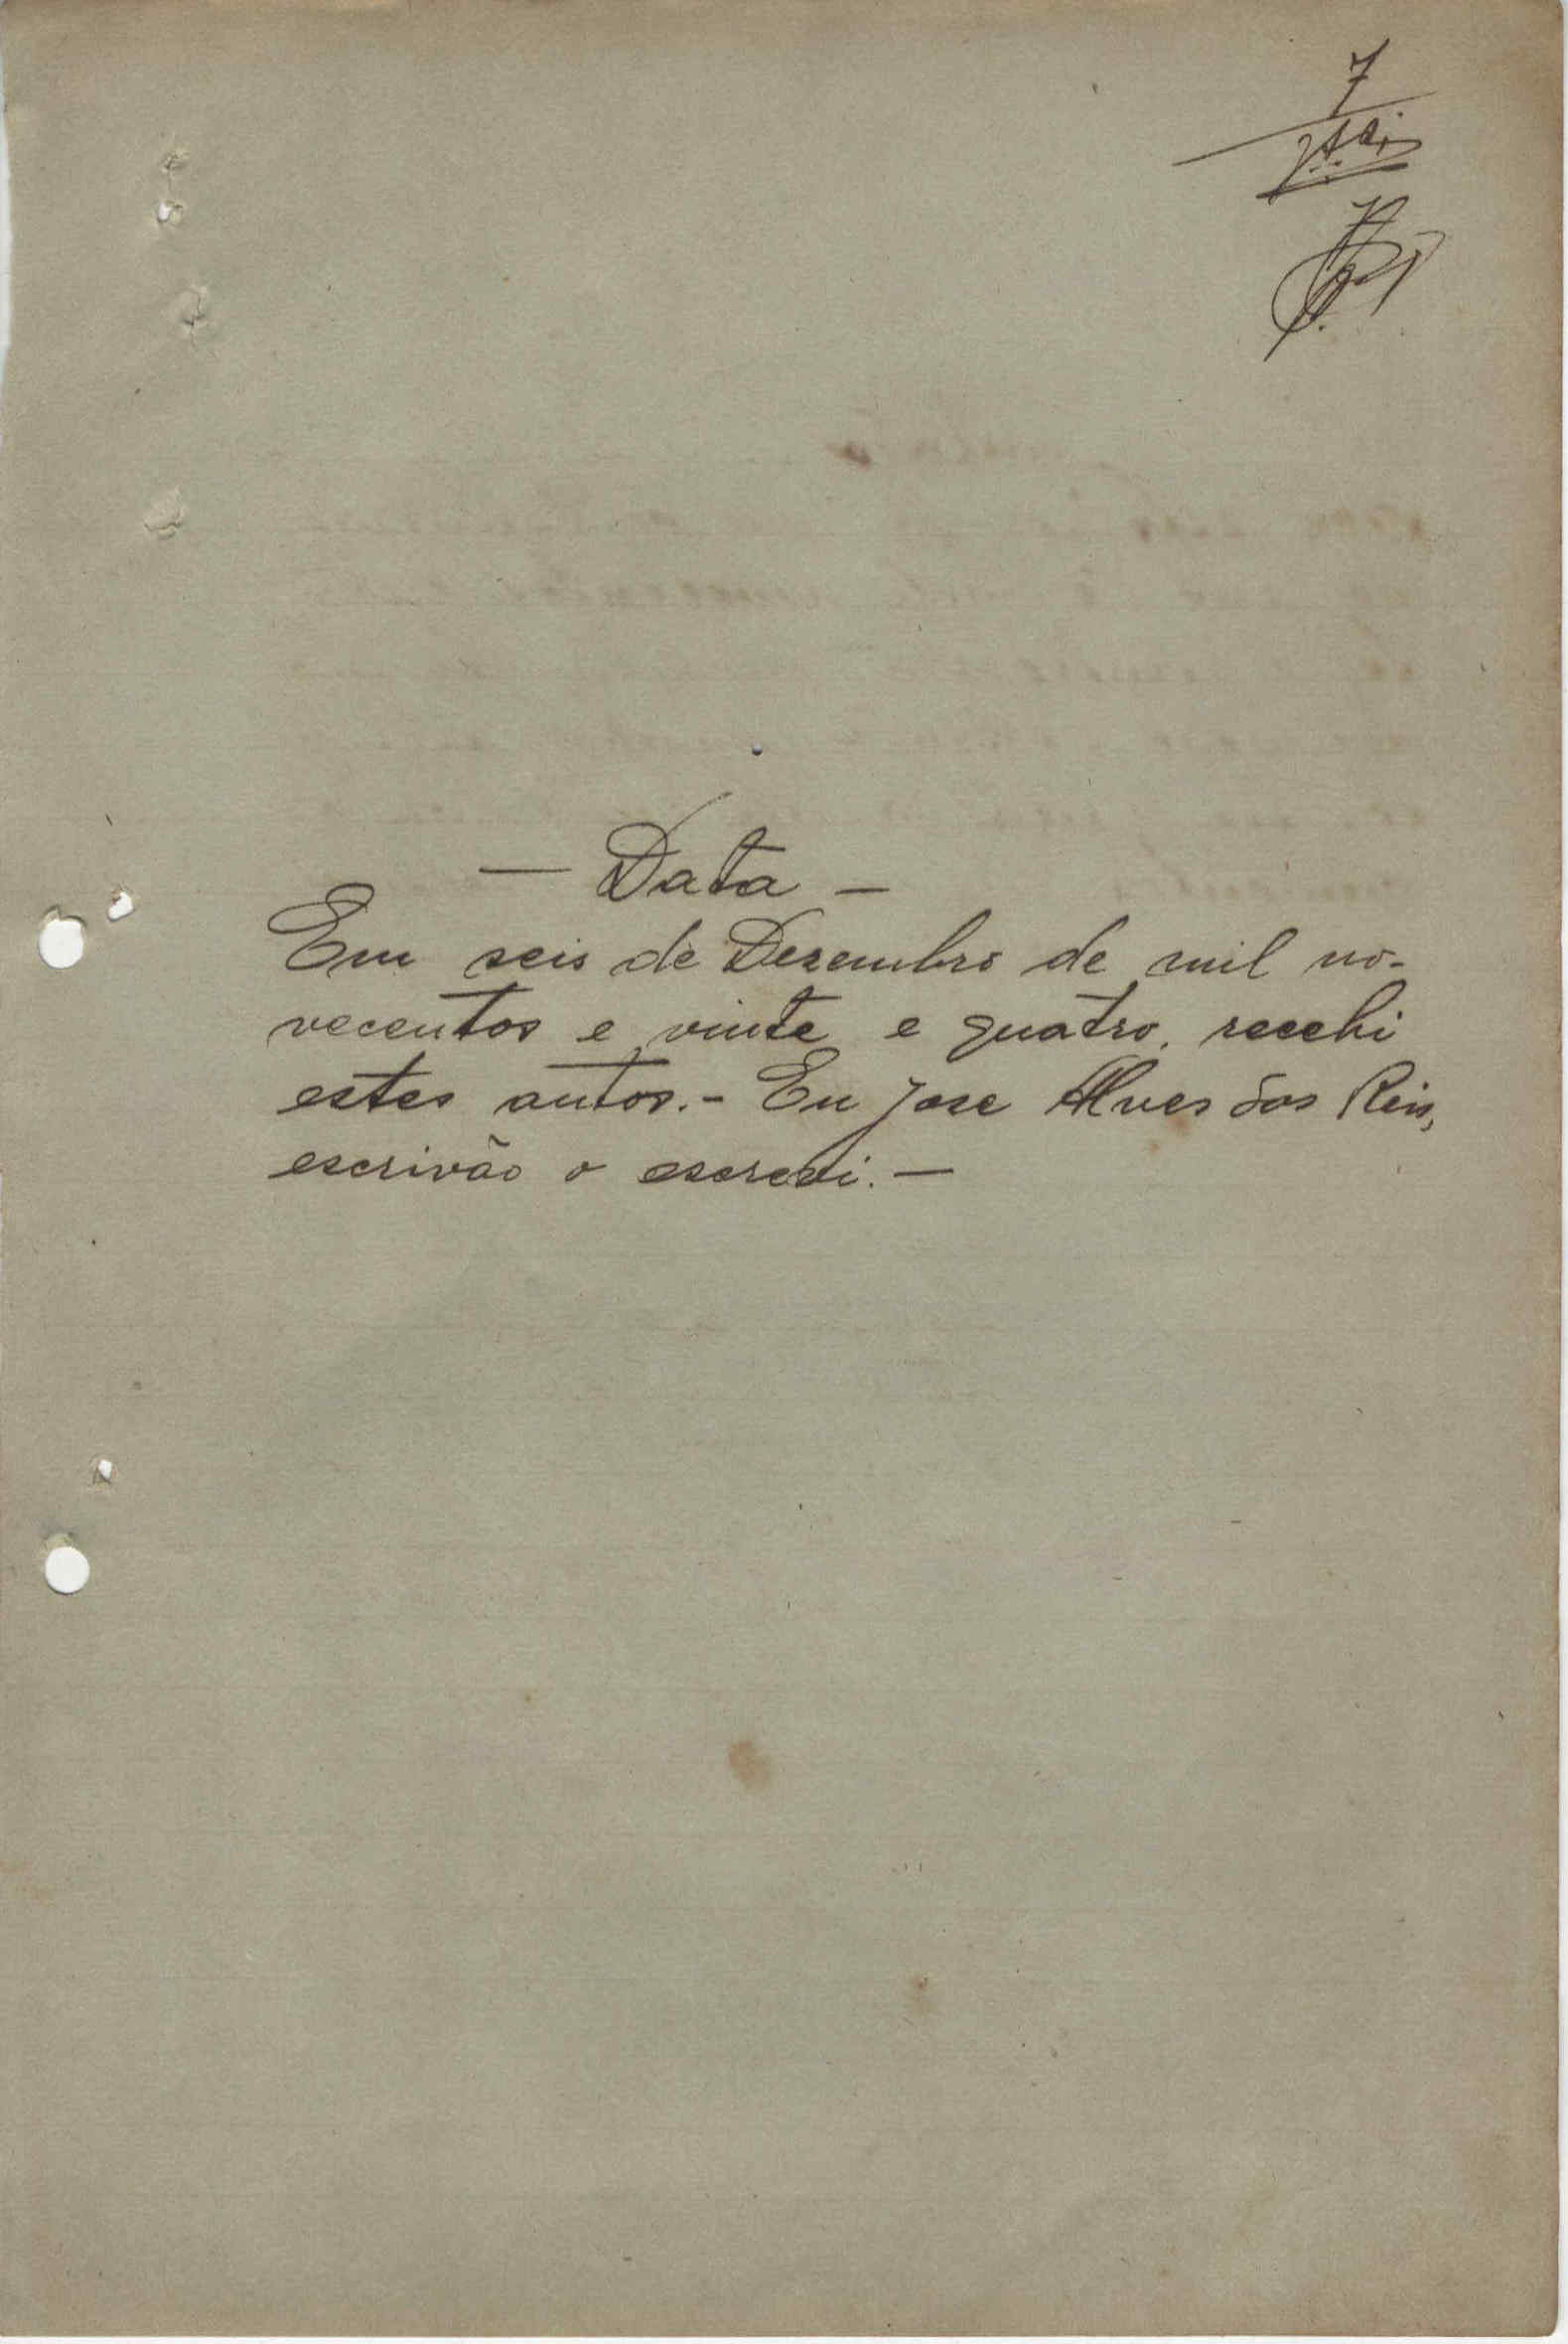 7
7
— Data —
Em seis de Dezembro de mil no-
vecentos e vinte e quatro, recebi
estes autos.- Eu Jose Alves dos Reis,
escrivão o escrevi. —